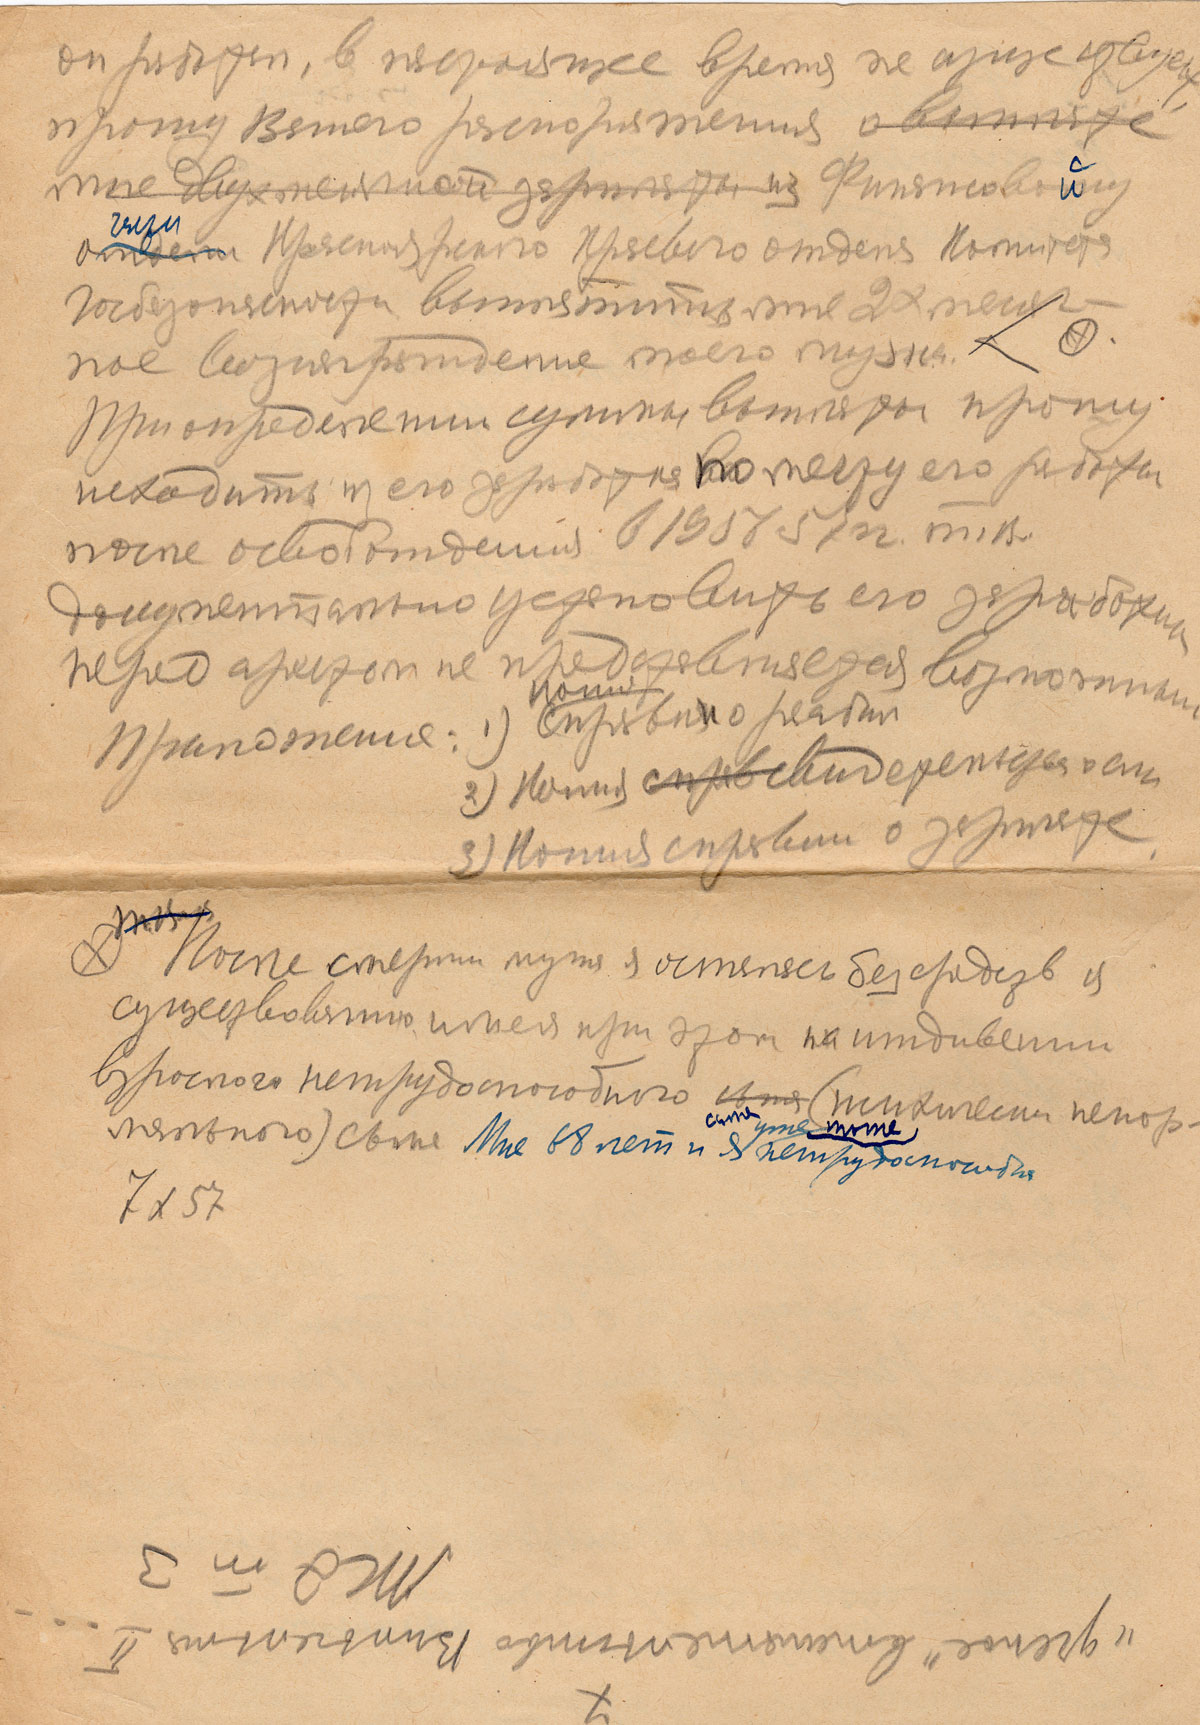 он работал, в настоящее время не существует,
прошу Вашего распоряжения о выплате
мне двухмесячной зарплаты из Финансовому й
отделу части Красноярского Краевого отдела Комитета
Госбезопасности выплатить мне 2х месяч-
ное вознаграждение моего мужа.
При определении суммы выплаты прошу
исходить из его заработка по месту его работы
после освобождения в 1957 г. т.к.
документально установить его заработки
перед арестом не представляется возможным
Приложения: 1) копия Справки о реабил
2) Копия справ свидетельства о см
3) Копия справки о зарплате.
После смерти мужа я осталась без средств к
существованию, имея при этом на иждивении
взрослого нетрудоспособного сына (психически ненор-
мального) сына Мне 68 лет и я сама уже тоже нетрудоспособна
7 X 57
7
"ученое" вмешательство Вильгельма II
ТС 2 т 3